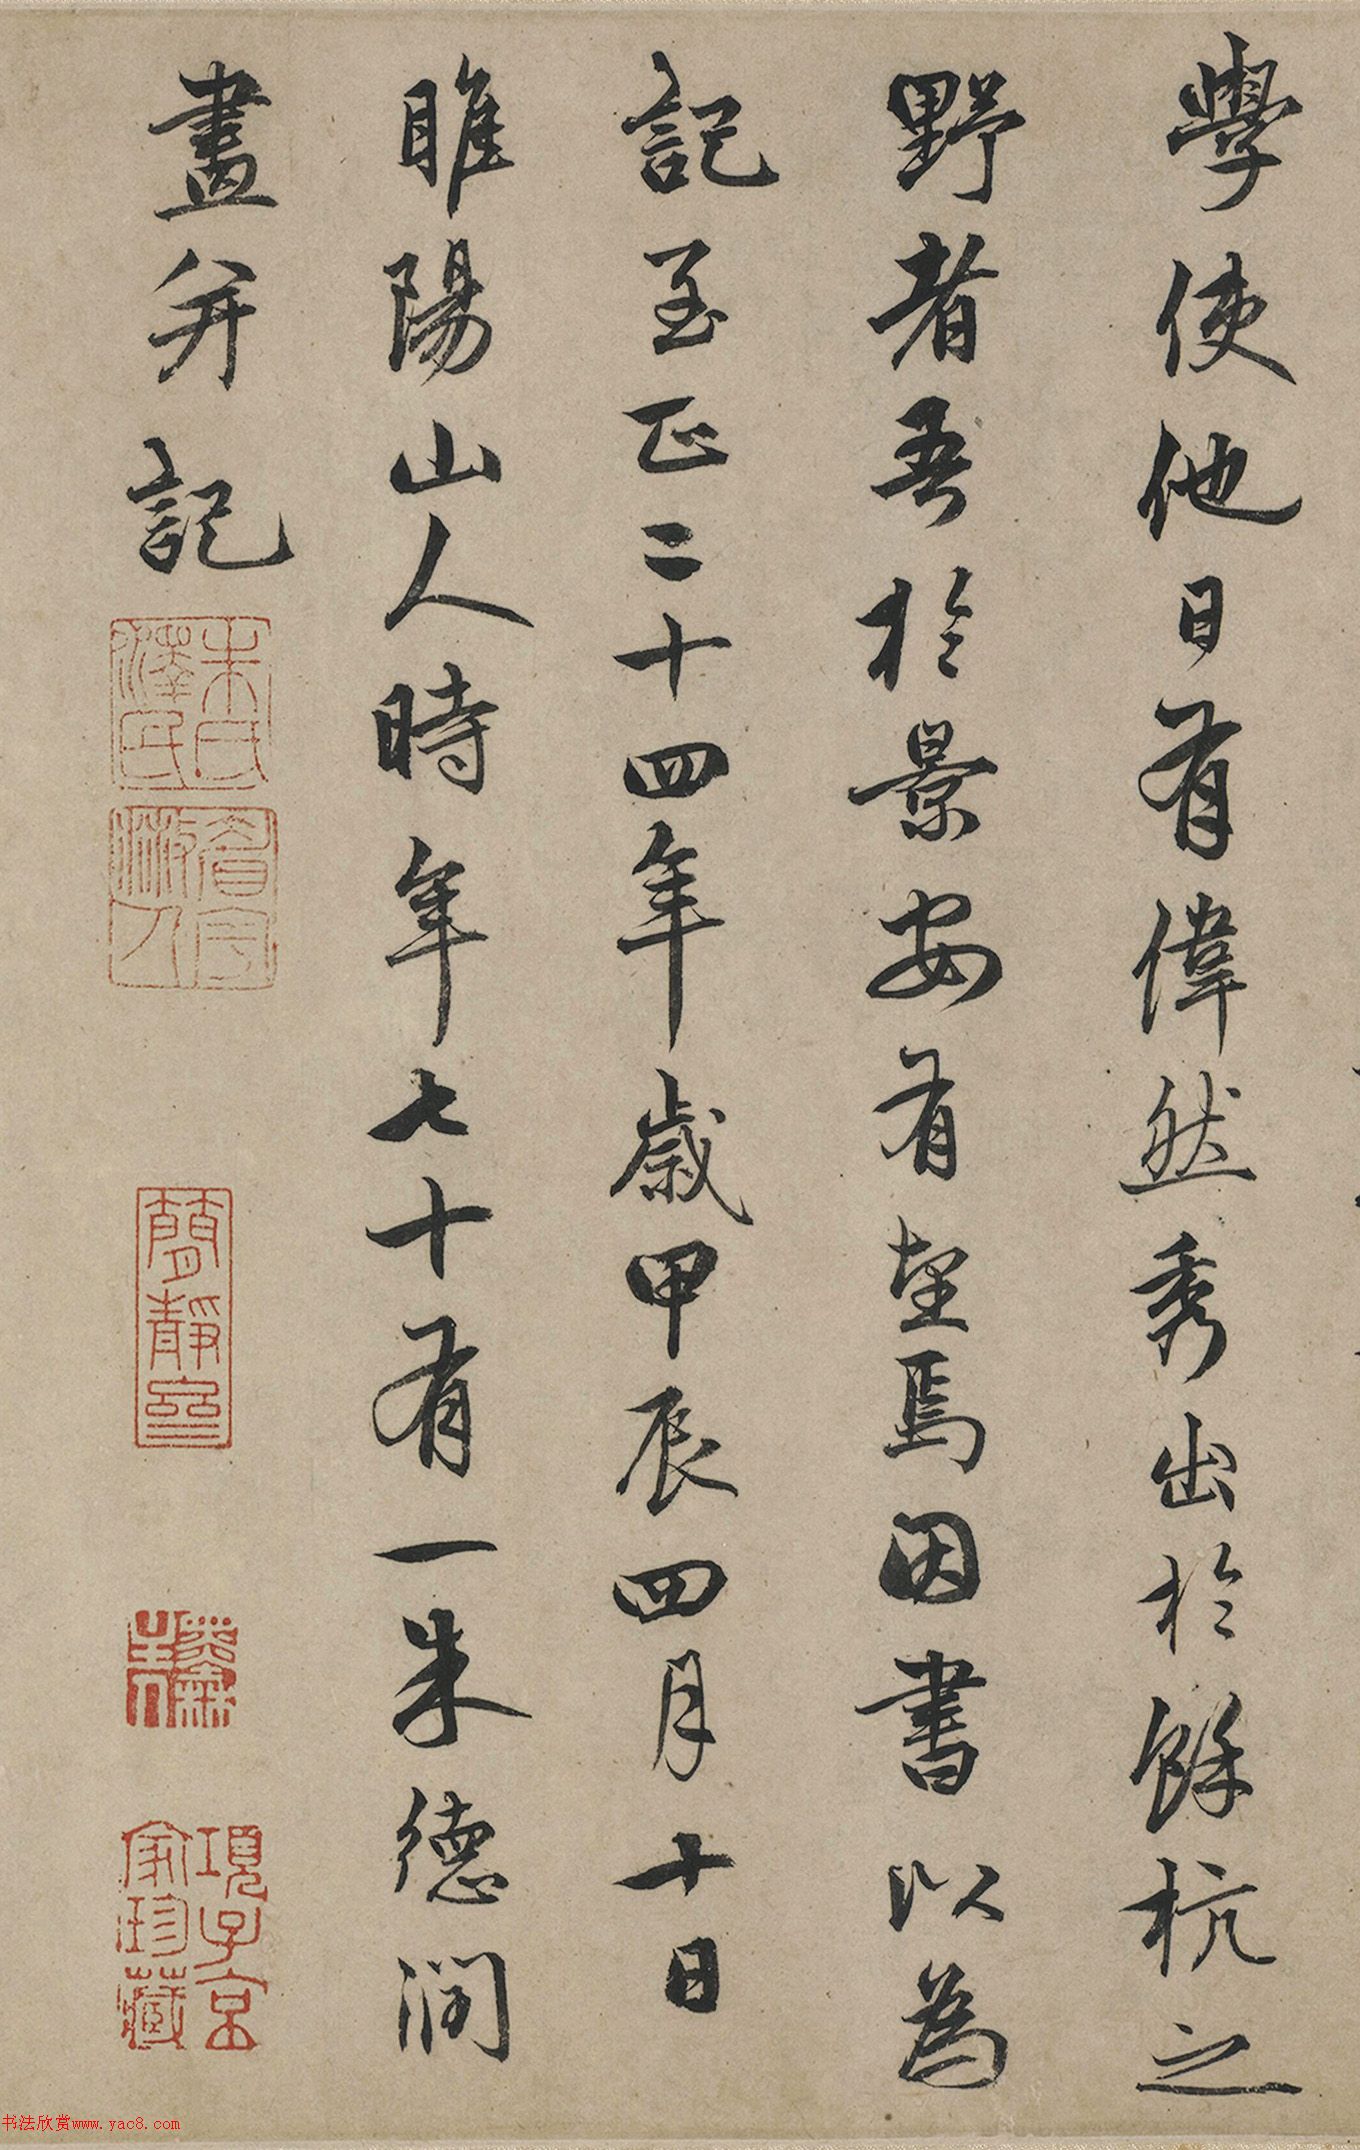 學使他日有偉然秀出於餘杭之
野者吾於景安有望焉因書以為
記至正二十四年歲甲辰四月十日
睢陽山人時年七十有一朱德潤
畫并記
朱氏澤民
簡靜齋
項子京家珍藏
书法欣赏www.yac8.com